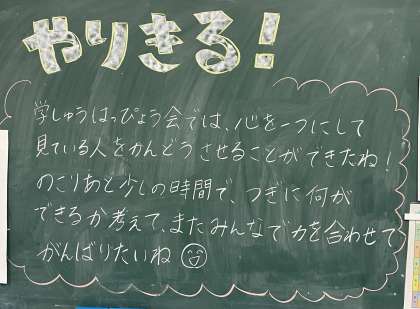 やりきる！
学しゅうはっぴょう会では、心を一つにして
見ている人をかんどうさせることができたね！
のこりあと少しの時間で、つぎに何が
できるか考えて、またみんなで力を合わせて
がんばりたいね